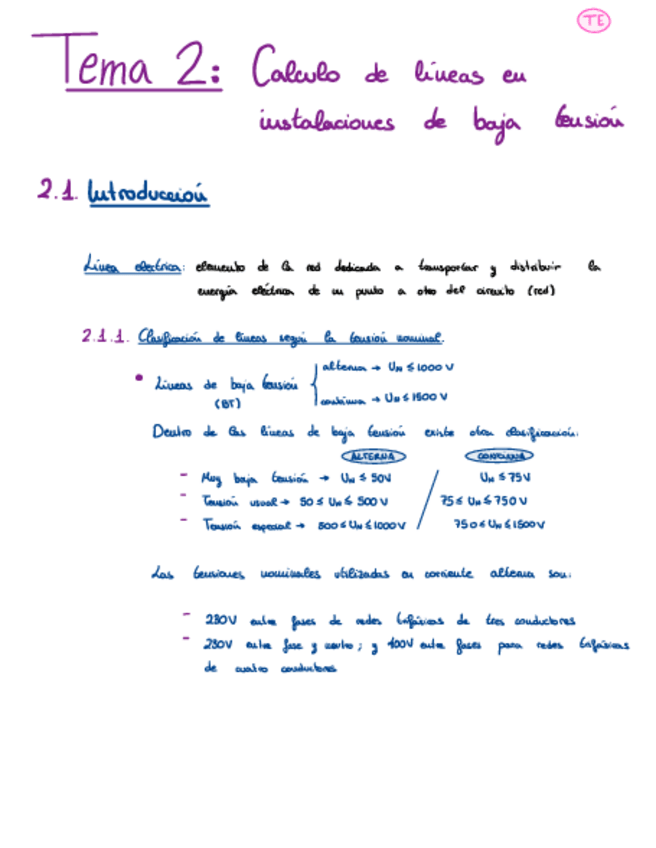 TE
Tema 2: Calculo de líneas en
instalaciones de baja tensión
2.1. Introducción
Línea eléctrica: elemento de la red dedicada a transportar y distribuir la
energía eléctrica de un punto a otro del circuito (red)
2.1.1. Clasificación de líneas según la tensión nominal.
• Líneas de baja tensión (BT)
alterna → UN ≤ 1000 V
continua → UN ≤ 1500 V
Dentro de las líneas de baja tensión existe otra clasificación:
ALTERNA CONTINUA
- Muy baja tensión → UN ≤ 50V / UN ≤ 75V
- Tensión usual → 50 ≤ UN ≤ 500 V / 75 ≤ UN ≤ 750 V
- Tensión especial → 500 ≤ UN ≤ 1000 V / 750 ≤ UN ≤ 1500 V
Las tensiones nominales utilizadas en corriente alterna son:
- 230V entre fases de redes trifásicas de tres conductores
- 230V entre fase y neutro; y 400V entre fases para redes trifásicas
de cuatro conductores